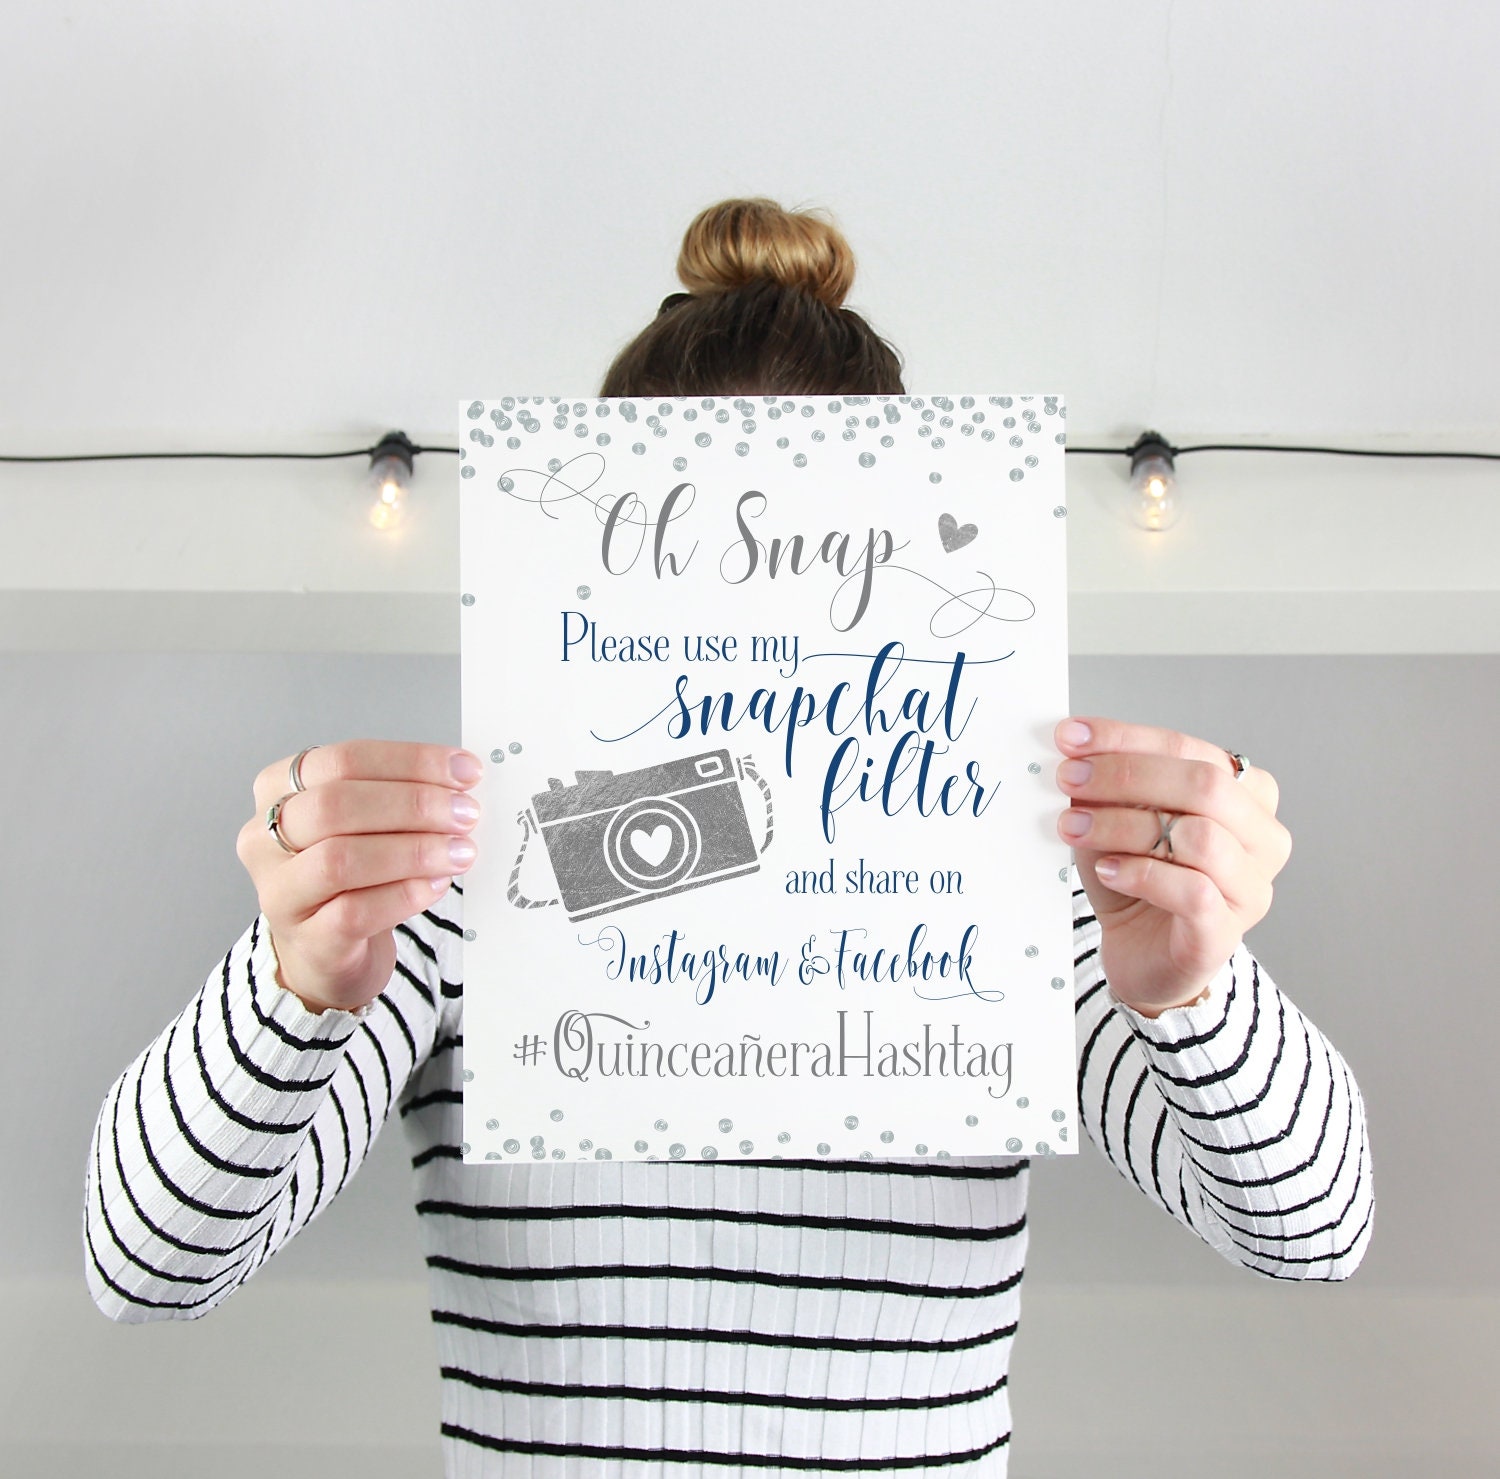 Oh Snap
Please use my
snapchat
filter
and share on
Instagram & Facebook
#QuinceañeraHashtag